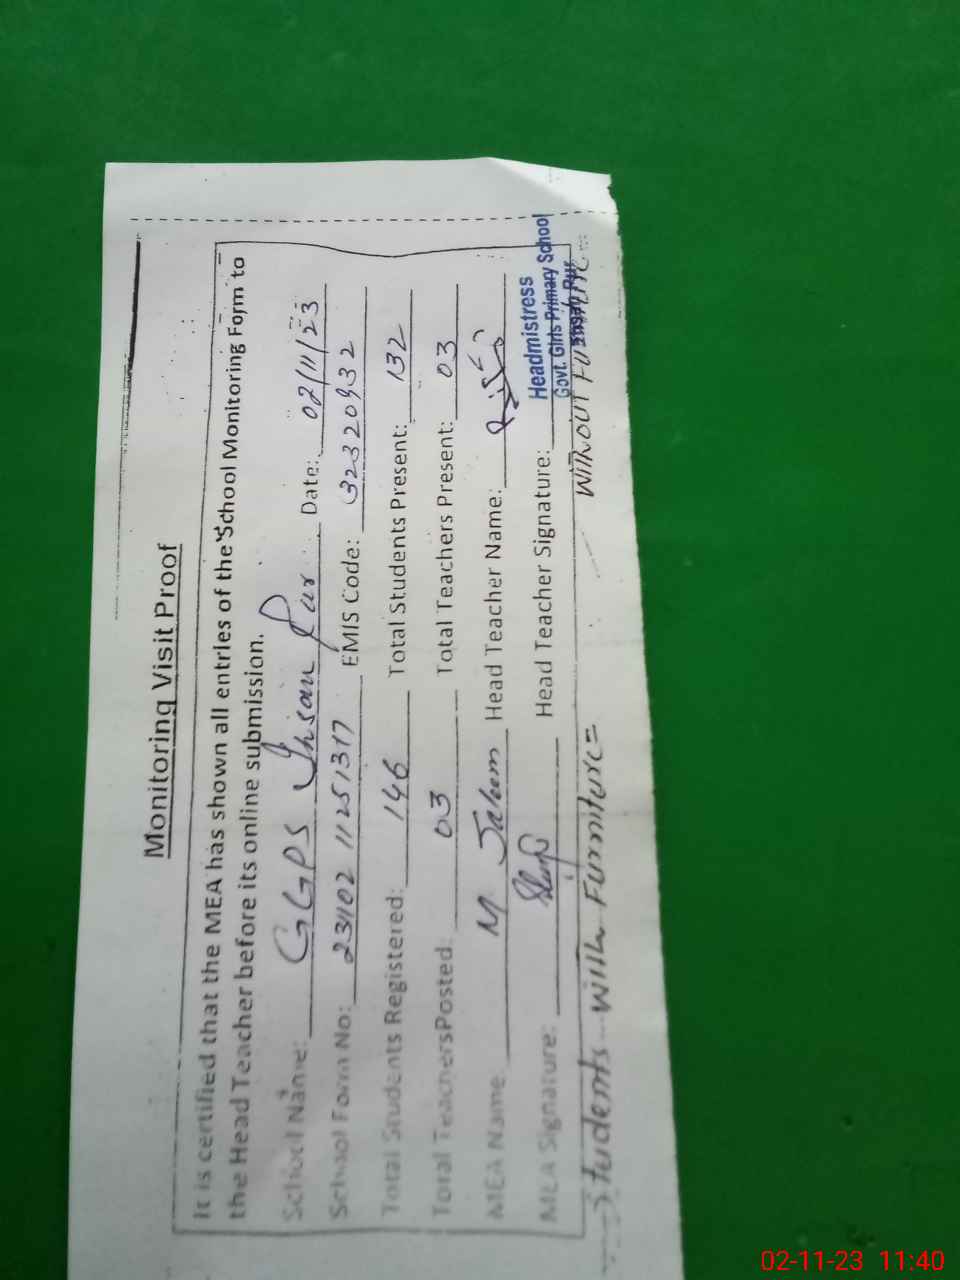 Monitoring Visit Proof
It is certified that the MEA has shown all entries of the School Monitoring Form to
the Head Teacher before its online submission.
School Name: GGPS Ihsan Pur Date: 02/11/23
School Form No: 23102 11251317 EMIS Code: 32320932
Total Students Registered: 146 Total Students Present: 132
Total TeachersPosted: 03 Total Teachers Present: 03
MEA Name: M Saleem Head Teacher Name:
MEA Signature: Head Teacher Signature:
Headmistress
Govt. Girls Primary School
Ihsan Pur
Students with Furniture= Without Furniture=
02-11-23 11:40